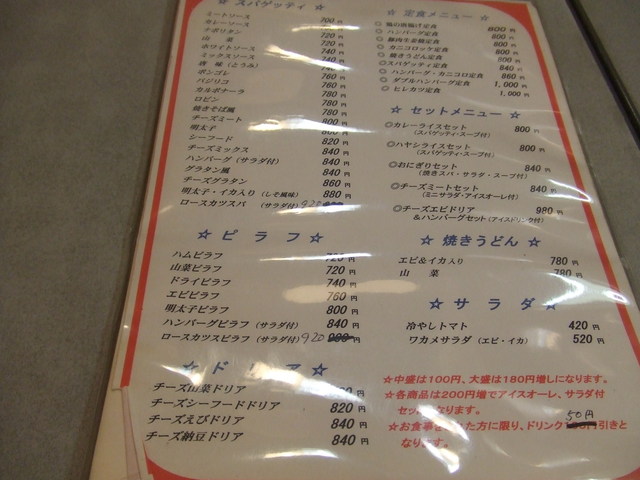 ☆ スパゲッティ ☆
ミートソース 700円
カレーソース
ナポリタン 720円
山菜 720円
ホワイトソース 740円
ミックスソース 740円
ボンゴレ 760円
バジリコ 760円
カルボナーラ 780円
ロビン 780円
焼きそば風 780円
チーズミート 800円
明太子 800円
シーフード 820円
チーズミックス 840円
ハンバーグ (サラダ付) 840円
グラタン風 840円
チーズグラタン 860円
明太子・イカ入り (しそ風味) 880円
ロースカツスパ (サラダ付) 920円
☆ ピラフ ☆
ハムピラフ 720円
山菜ピラフ 720円
ドライピラフ 740円
エビピラフ 760円
明太子ピラフ 800円
ハンバーグピラフ (サラダ付) 840円
ロースカツスピラフ (サラダ付) 920円
☆ ドリア ☆
チーズ山菜ドリア 円
チーズシーフードドリア 820円
チーズえびドリア 840円
チーズ納豆ドリア 840円
☆ 定食メニュー ☆
◎ 鶏の唐揚げ定食 800円
◎ ハンバーグ定食 800円
◎ 豚肉生姜焼定食 800円
◎ カニコロッケ定食 800円
◎ 焼きうどん定食 800円
◎スパゲティ定食 840円
◎ ハンバーグ・カニコロ定食 860円
◎ ダブルハンバーグ定食 1,000円
◎ ヒレカツ定食 1,000円
☆ セットメニュー ☆
◎カレーライスセット 800円
(スパゲッティ・スープ付)
◎ハヤシライスセット 800円
(スパゲッティ・スープ付)
◎おにぎりセット 840円
(焼きスパ・サラダ・スープ付)
◎チーズミートセット 840円
(ミニサラダ・アイスオーレ付)
◎チーズエビドリア 980円
&ハンバーグセット(アイスドリンク付)
☆ 焼きうどん ☆
エビ&イカ入り 780円
山菜 780円
☆ サラダ ☆
冷やしトマト 420円
ワカメサラダ (エビ・イカ) 520円
☆中盛は100円、大盛は180円増しになります。
☆各商品は200円増でアイスオーレ、サラダ付
セットになります。
50円
☆お食事をされた方に限り、ドリンク 円引きと
なります。